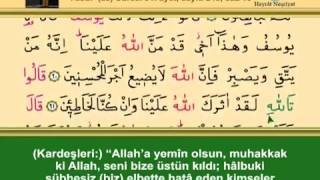 Hayrât Neşriyat
يُوسُفُ وَهٰذَٓا اَخ۪ي قَدْ مَنَّ اللّٰهُ عَلَيْنَا اِنَّهُ مَنْ
يَتَّقِ وَيَصْبِرْ فَاِنَّ اللّٰهَ لَا يُض۪يعُ اَجْرَ الْمُحْسِن۪ينَ ﴿٩٠﴾ قَالُوا
تَاللّٰهِ لَقَدْ اٰثَرَكَ اللّٰهُ عَلَيْنَا وَاِنْ كُنَّا لَخَاطِـ۪ٔينَ ﴿٩١﴾
(Kardeşleri:) “Allah’a yemîn olsun, muhakkak
ki Allah, seni bize üstün kıldı; hâlbuki
şübhesiz (biz) elbette hatâ eden kimseler